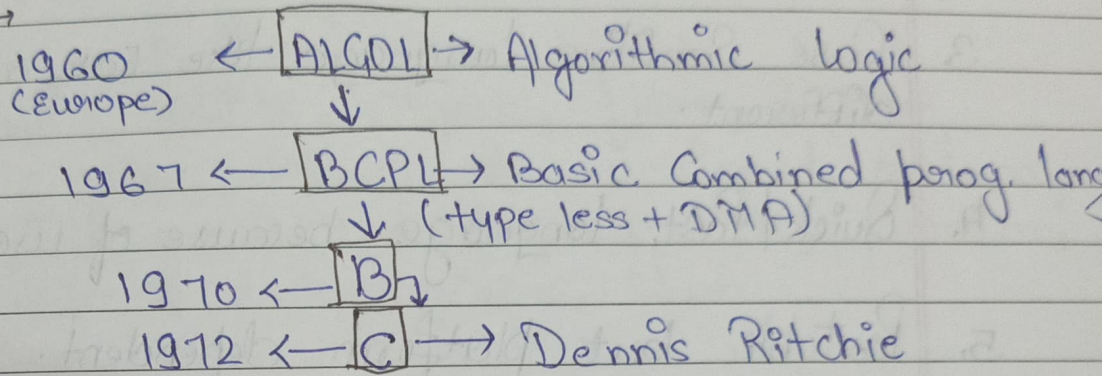 1960 ← ALGOL → Algorithmic logic
(Europe) ↓
1967 ← BCPL → Basic Combined prog. lang
↓ (type less + DMA)
1970 ← B
1972 ← C → Dennis Ritchie